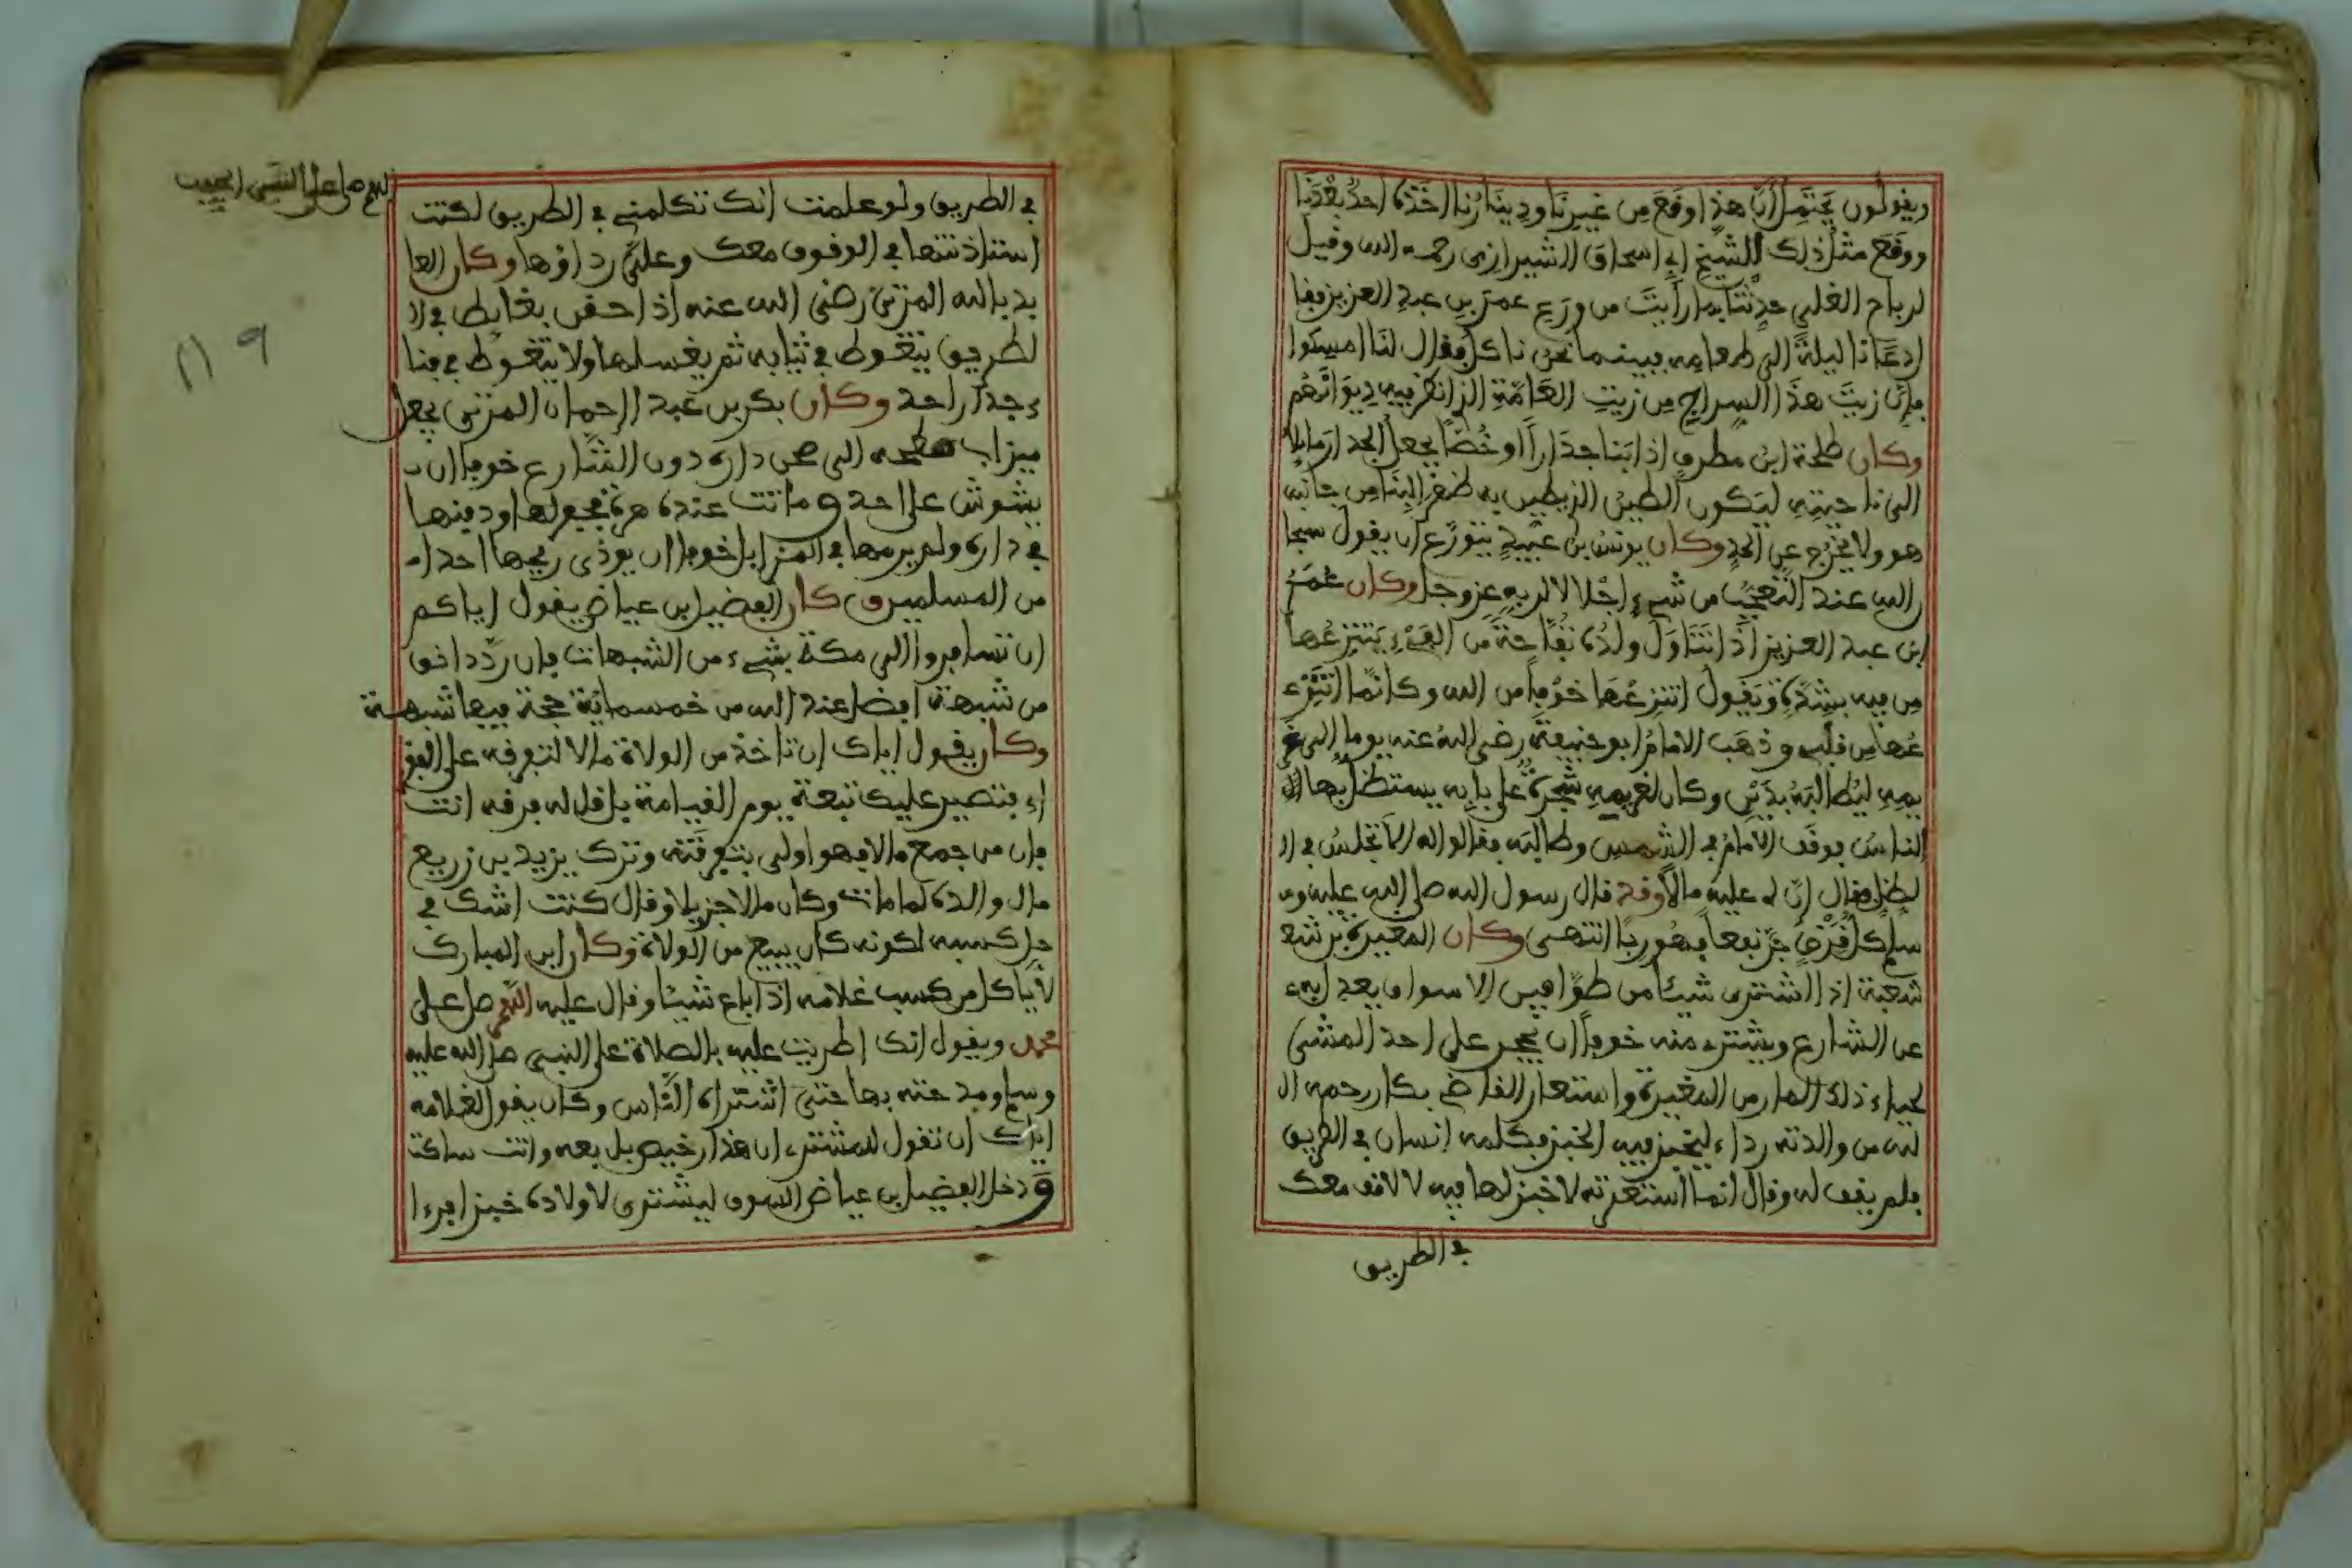 ويقولون يحتمل أن هذا وقع من غيرنا ودينارنا أخذه احد بعدنا
ووقع مثل ذلك للشيخ ابي اسحاق الشيرازي رحمه الله وقيل
لرباح حدثنا بما رأيت من ورع عمر بن عبد العزيز فقا
ل دعانا ليلة الى طعامه فبينما نحن ناكل فقال لنا امسكوا
فإن زيت هذا السراج من زيت العامة الذي انظر فيه ديوانهم
وكان طلحة ابن مطرف اذا بنا جدارا او خصا يجعل الجدار مايلا
الى ناحيته ليكون الطين الذي يطين به ظهر البنا من جانبه
هو ولا يخرج عن الحد وكان يونس بن عبيد يتورع ان يقول سبحا
ن الله عند التعجب من شيء اجلالا لربه عز وجل وكان عمر
ابن عبد العزيز اذا تناول ولده تفاحة من الفيء ينتزعها
من فيه بشدة ويقول انتزعها خوفا من الله وكانما انتز
عها من قلبي وذهب الامام ابو حنيفة رضي الله عنه يوما الى غر
يمه ليطالبه بدين وكان لغريمه شجرة على بابه يستظل بها ال
الناس فوقف الامام في الشمس وطالبه فقالوا له الا تجلس في ا
لظل فقال ان لي عليه مالا وقد قال رسول الله صلى الله عليه و
سلم كل قرض جر نفعا فهو ربا انتهى وكان المغيرة بن شع
شعبة اذا اشترى شيئا من طوافين الاسواق يعد ليه
عن الشارع ويشتري منه خوفا ان يحجر على احد المشي
لحياء ذلك المار من المغيرة واستعار القاضي بكار رحمه ال
له من والدته رداء ليخبز فيه الخبز فكلمه انسان في الطريق
فلم يقف له وقال انما استعرته لاخبز لها فيه لا لاقف معك
في الطريق
اللهم صل على النبي الحبيب
في الطريق ولو علمت انك تكلمني في الطريق لكنت
استاذنتها في الوقوف معك وعلي رداؤها وكان العا
بد بالله المزني رضي الله عنه اذا حقن بغايط في ا
لطريق يتغوط في ثيابه ثم يغسلها ولا يتغوط في فنا
ء جدار احد وكان بكر بن عبد الرحمان المزني يجعل
ميزاب الى صحن داره دون الشارع خوفا ان
يشوش على احد وماتت عنده هرة فحفر لها ودفنها
في داره ولم يرمها في المزابل خوفا ان يوذي ريحها احدا
من المسلمين وكان الفضيل بن عياض يقول اياكم
ان تسافروا الى مكة بشيء من الشبهات فإن رد دانق
من شبهة افضل عند الله من خمسماية حجة فيها شبهة
وكان يقول اياك ان تاخذ من الولاة مالا لتفرقه على الفقر
اء فتصير عليك تبعة يوم القيامة بل قل له فرقه انت
فإن من جمع مالا فهو اولى بتفرقته وترك يزيد بن زريع
مال والده لما مات وكان مالا جزيلا وقال كنت اشك في
حل كسبه لكونه كان يبيع من الولاة وكان ابن المبارك
لا ياكل من كسب غلامه اذا باع شيئا وقال عليه اللهم صل على
محمد ويقول انك اطريت عليه بالصلاة على النبي صلى الله عليه
وسلم ومدحته بها حتى اشتراه الناس وكان يقول لغلامه
اياك ان تقول للمشتري ان هذا رخيص بل بعه وانت ساكت
ودخل الفضيل بن عياض السوق ليشتري لاولاده خبزا فرءا
119